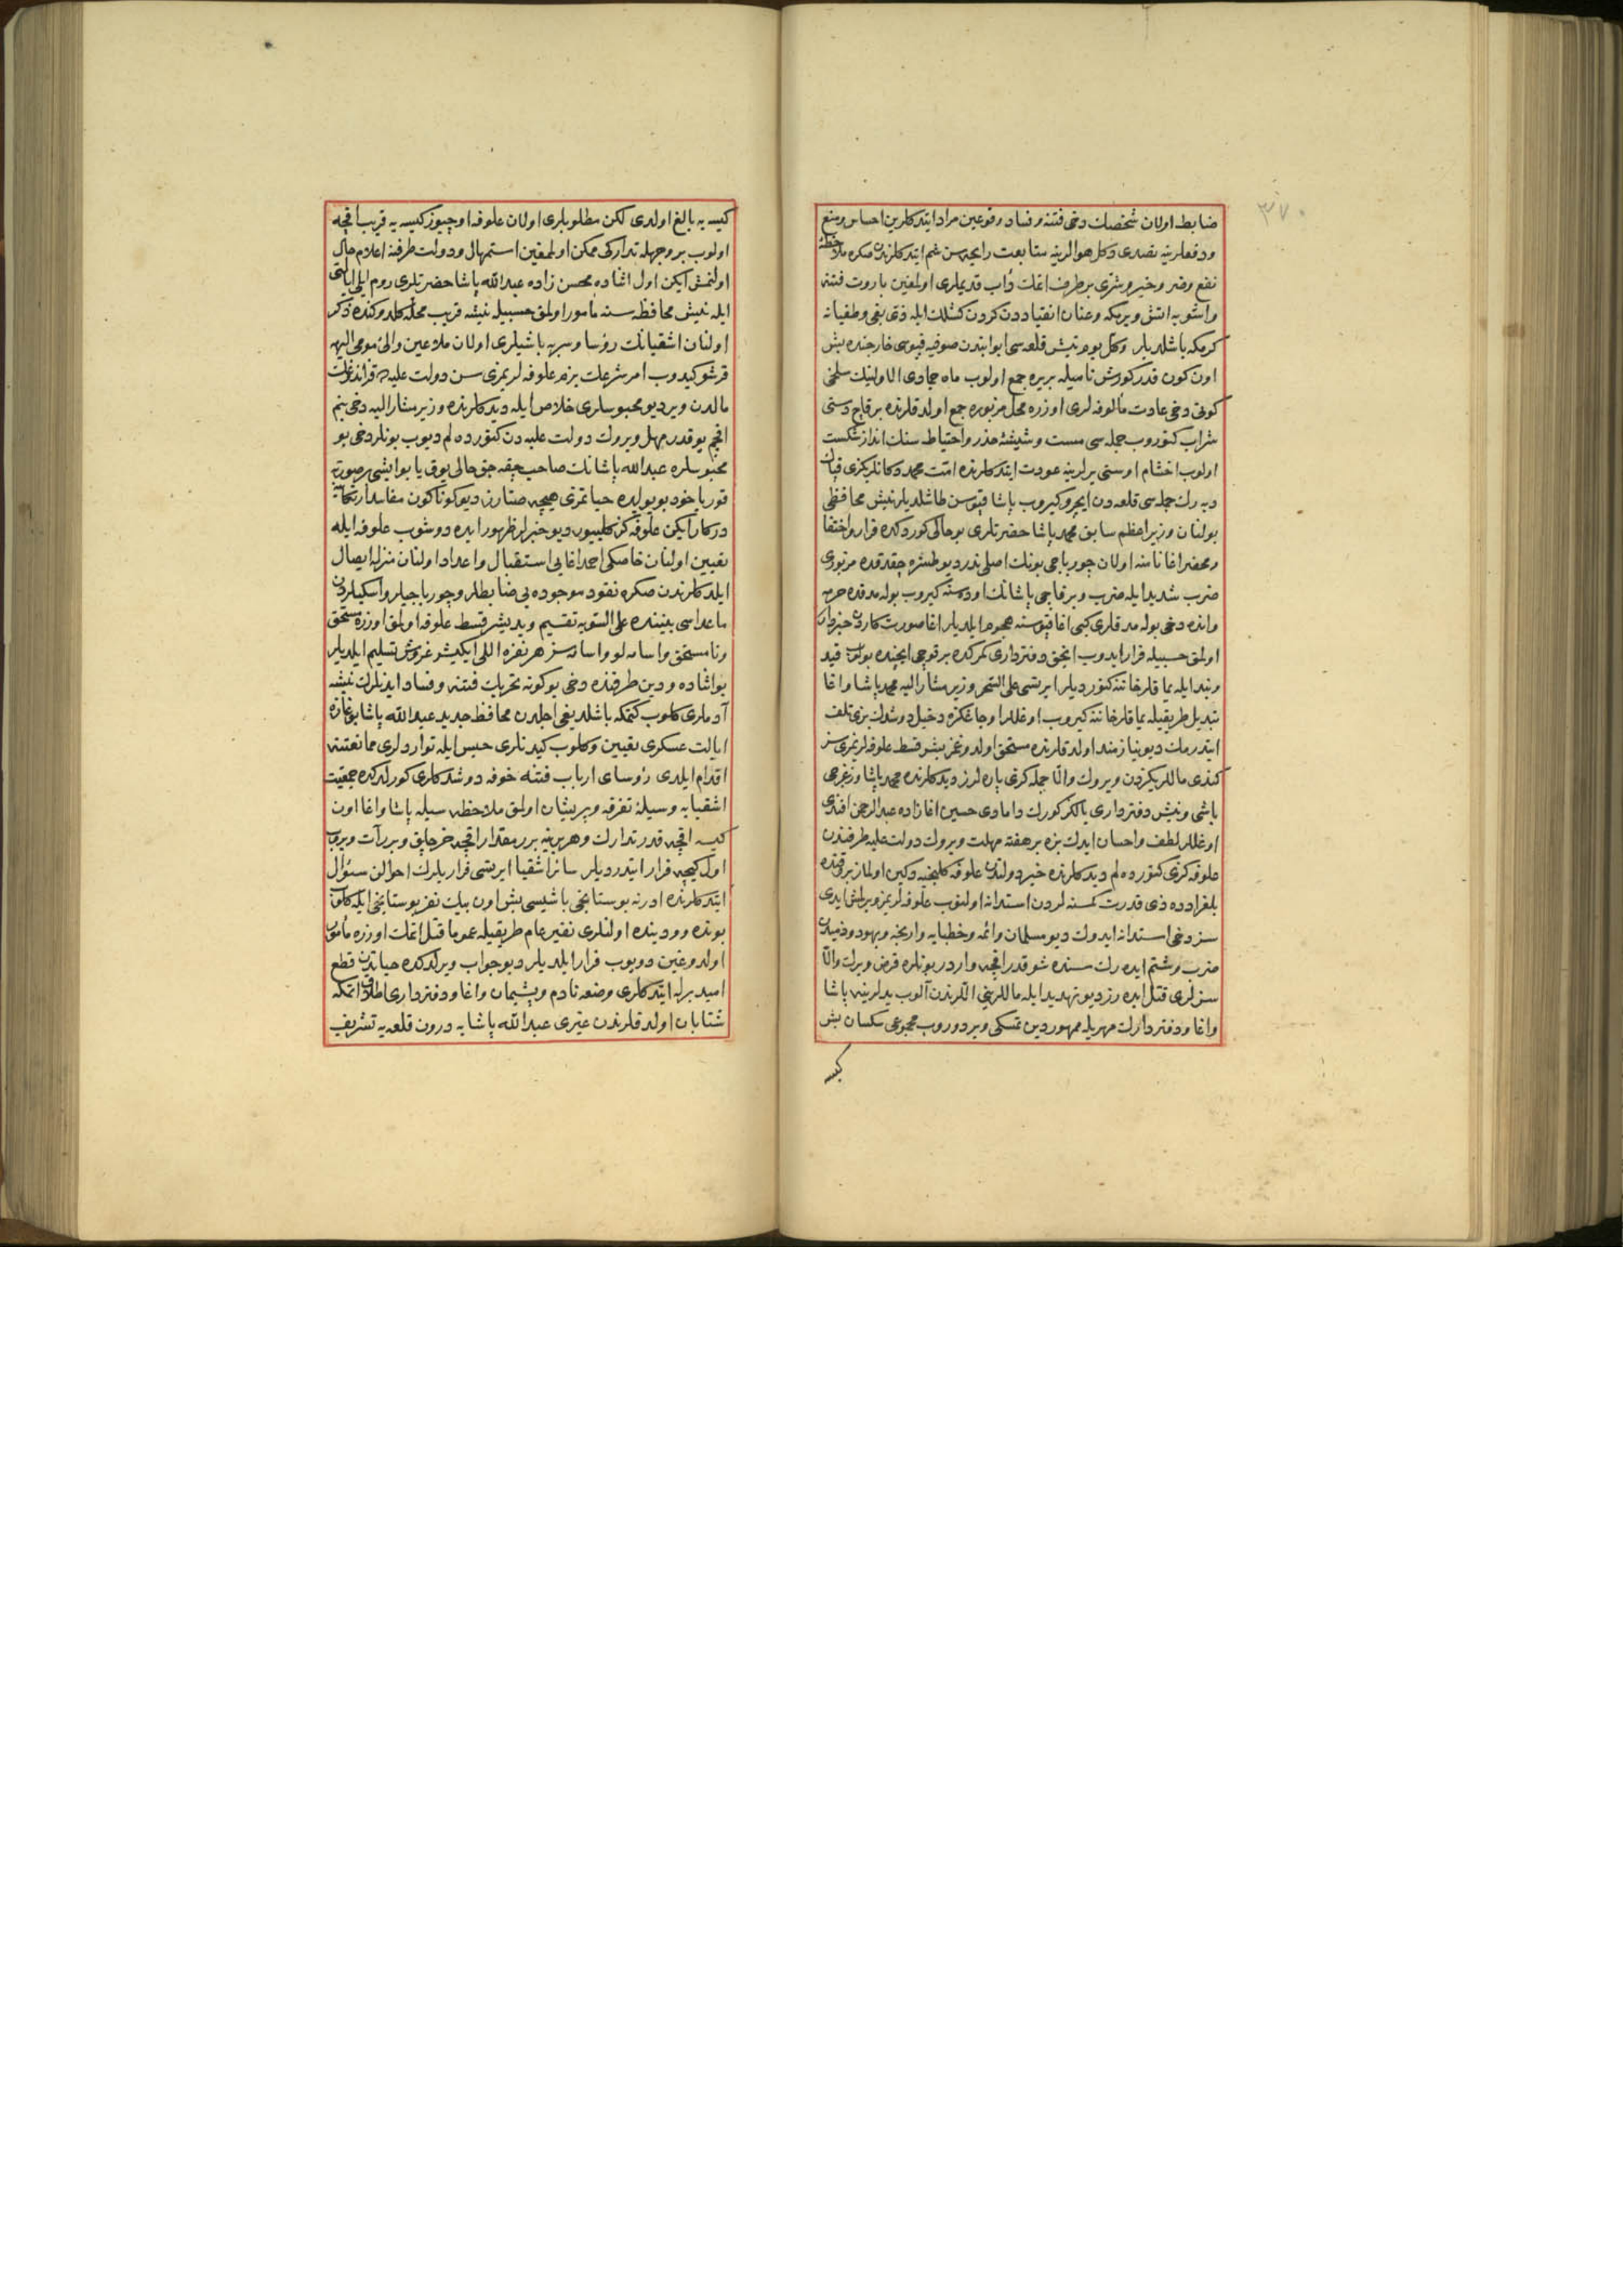 ٣٧٠
ضابط اولان شخصك دخی فتنه و فساد وقوعین مراد ایتدكلرین احساس و منع
و دفعلرینه تصدی و كل هوالرینه متابعت رایحه سن شم ایتدكلرندن صكره ملاحظهٔ
نفع و ضر و خیر و شری بر طرف اتمك دأب قدیملری اولمغین باروت فتنه
و آشوبه اتش ویرمكه و عنان انقیاددن كردن كشلك ایله ذی بغی و طغیانه
كرمكه باشلدیلر و كل یوم نیش قلعه سی ابوابندن صوفیه قپوسی خارجنده بش
اون كون قدر كورش نامیله بریره جمع اولوب ماه جمادی الاولینك سلخی
كونی دخی عادت مألوفه لری اوزره محل مزبوره جمع اولدقلرنده برقاچ دستی
شراب كتوروب جمله سی مست و شیشهٔ حذر و احتیاطه سنك انداز شكست
اولوب اخشام اوستی یرلرینه عودت ایتدكلرنده امت محمد دكانلریكزی قپان
دیه رك جمله سی قلعه دن ایچرو كیروب پاشا قپوسن طاشلدیلر نیش محافظی
بولنان وزیر اعظم سابق محمد پاشا حضرتلری بو حالی كوردكده فرار و اختفا
و محضر اغا نامنه اولان چورباجی بونك اصلی ندر دیو طشره چقدقده مزبوری
ضرب شدید ایله ضرب و برقاچی پاشانك اودهسنه كیروب بوله مدقده حرمه
و انده دخی بوله مدقلری كبی اغا قپوسنه هجوم ایلدیلر اغا صورت كاردن خبردار
اولمق حسبیله فرار ایدوب انجق دفترداری كمركده بر قوجی ایچنده بولوب قید
و بند ایله یماقلر خانه سنه كتوردیلر ایرتسی علی السحر وزیر مشار الیه محمد پاشا و اغا
تبدیل طریقیله یماقلر خانه سنه كیروب اوغللر اوجاغكزه دخیل دوشدك بزی تلف
ایتدرمك دیو نیازمند اولدقلرنده مستحق اولدوغمز بشر قسط علوفه لریمزی سز
كندی ماللریكزدن ویرك و الا جمله كزی پاره لرز دیدكلرنده محمد پاشا و زغرجی
باشی و نیش دفترداری یالكز كورك دامادی حسین اغازاده عبدالرحمن افندی
اوغللر لطف و احسان ایدك بزه بر هفته مهلت ویرك دولت علیه طرفندن
علوفه كزی كتوردهلم دیدكلرنده خیر دولتدن علوفه كلنجیه دكین اولماز بر قنده
بلغرادده ذی قدرت كمسنه لردن استدانه اولنوب علوفه لریمز ویرلمش ایدی
سز دخی استدانه ایدك دیو مسلمان و ائمه و خطبایه و اریحه و یهود و ذمیلری
ضرب و شتم ایده رك سنده شو قدر اقچه واردر بونلره قرض ویرك و الا
سزلری قتل ایده رز دیو تهدید ایله ماللرینی اللرندن آلوب یدلرینه پاشا
و اغا و دفتردارك مهریله ممهور دین تمسكی ویردوروب مجموعی سكسان بش
كیسه
كیسه یه بالغ اولدی لكن مطلوبلری اولان علوفه اوچیوز كیسه یه قریب اقچه
اولوب بر وجهله تداركی ممكن اولمغین استمهال و دولت طرفنه اعلام حال
اولنمش ایكن اول اثناده محسن زاده عبدالله پاشا حضرتلری روم ایلی ایالتی
ایله نیش محافظه سنه مأمور اولمق حسبیله نیشه قریب محله كلدوكنده ذكر
اولنان اشقیانك رؤسا و سربه باشیلری اولان ملاعین والیٔ مومی الیهه
قرشو كیدوب امر شرعك بزم علوفه لریمزی سن دولت علیه ده قزاندیغك
مالدن ویر دیو محبوسلری خلاص ایله دیدكلرنده وزیر مشار الیه دخی بنم
اقچم یوقدر مهل ویرك دولت علیه دن كتوردهلم دیوب بونلر دخی بو
محبوسلره عبدالله پاشانك صاحب چقه جق حالی یوق یا بو ایشی بر صورته
قور یا خود بو یولده حیاتمزی هیچه صتارز دیو كوناكون مفاسد ارتكابی
دركار ایكن علوفه كز كلییور دیو خبرلر ظهور ایده دوشوب علوفه ایله
تعیین اولنان خاصكی احمد اغایی استقبال و اعداد اولنان منزله ایصال
ایلدكلرندن صكره نقود موجوده یی ضابطلر و چورباجیلر و اسكیلردن
ماعداسی بیننده علی السویه تقسیم و یدیشر قسط علوفه اولمق اوزره مستحق
و نا مستحق و اسامه لو و اسامه سز هر نفره اللی ایكیشر غروش تسلیم ایلدیلر
بو اثناده ودین طرفنده دخی بو كونه تحریك فتنه و فساد ایدنلرك نیشه
آدملری كلوب كتمكه باشلدیغی اجلدن محافظ جدید عبدالله پاشا بوغازه
ایالت عسكری تعیین و كلوب كیدنلری حبس ایله تواردلری ممانعتنه
اقدام ایلدی رؤسای ارباب فتنه خوفه دوشدكلری كورلدكده جمعیت
اشقیایه وسیلهٔ تفرقه و پریشان اولمق ملاحظه سیله پاشا و اغا اون
كیسه اقچه قدر تدارك و هر برینه برر مقدار اقچه خرجلق و برر آت ویروب
اول كیجه فرار ایتدردیلر سائر اشقیا ایرتسی فراریلرك احوالن سؤال
ایتدكلرنده ادرنه بوستانجی باشیسی بش اون بیك نفر بوستانجی ایله كلوب
بونده و ودینده اولنلری نفیر عام طریقیله عموما قتل اتمك اوزره مأمور
اولدوغین دویوب فرار ایلدیلر دیو جواب ویرلدكده حیاتدن قطع
امید برله ایتدكلری وضعه نادم و پشیمان و اغا و دفترداری اطلاق اتمكه
شتابان اولدقلرندن غیری عبدالله پاشایه درون قلعه یه تشریف